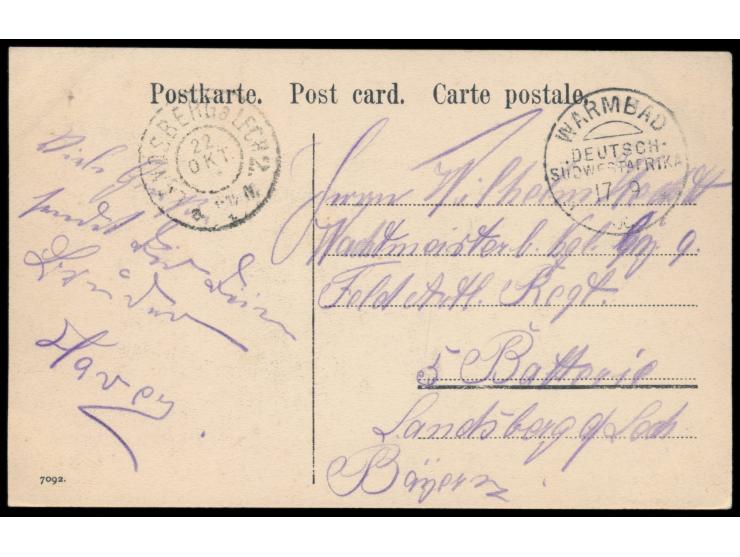 Postkarte. Post card. Carte postale.
LANDSBERG a. LECH 2.
22
OKT.
WARMBAD
DEUTSCH-
SÜDWESTAFRIKA
17 9
Viele Grüße
sendet Dir Dein
Bruder
Xaver
Herrn Wilhelm
Wachtmeister b. kgl. bay. 9.
Feld Artl. Regt.
5 Batterie
Landsberg a/Lech
Bayern
7092.